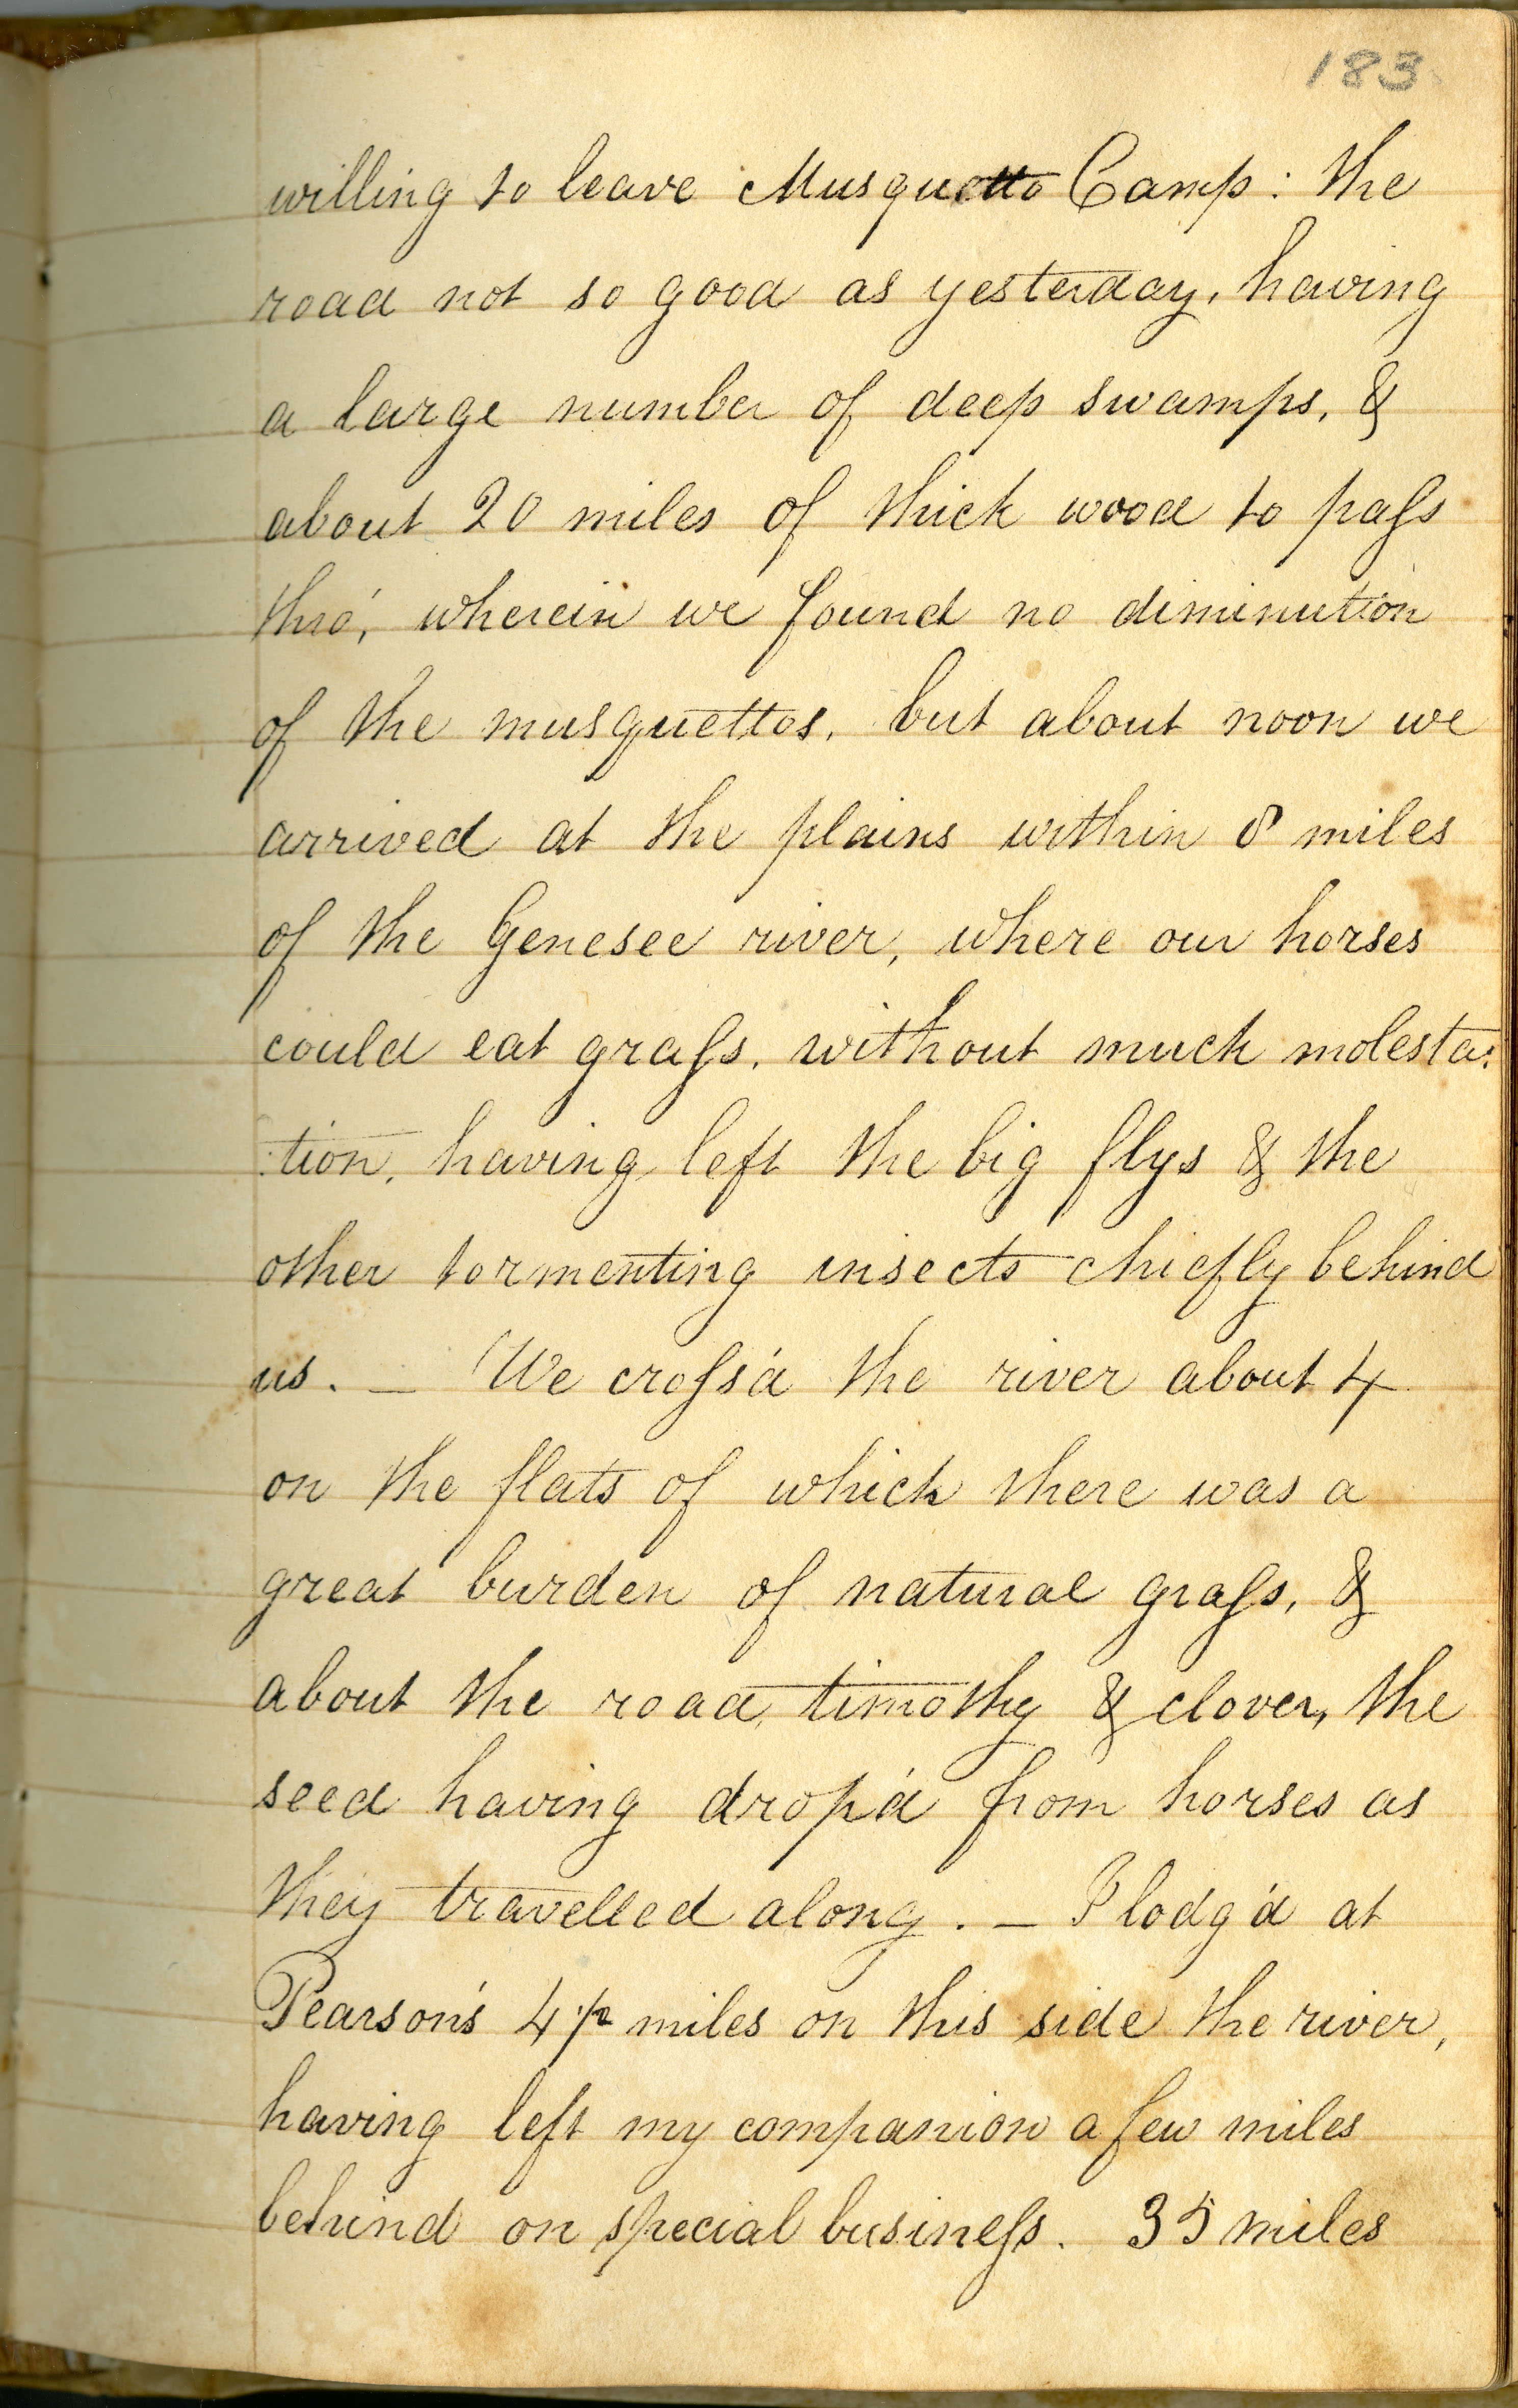 183
willing to leave Musquetto Camp: the
road not so good as yesterday, having
a large number of deep swamps, &
about 20 miles of thick wood to paſs
thro', wherein we found no diminution
of the musquettos, but about noon we
arrived at the plains within 8 miles
of the Genesee river, where our horses
could eat graſs, without much molesta:
:tion, having left the big flys & the
other tormenting insects chiefly behind
us. — We croſs'd the river about 4
on the flats of which there was a
great burden of natural graſs, &
about the road, timothy & clover, the
seed having drop'd from horses as
they travelled along. — I lodg'd at
Pearson's 4 1/2 miles on this side the river,
having left my companion a few miles
behind on special busineſs. 35 miles